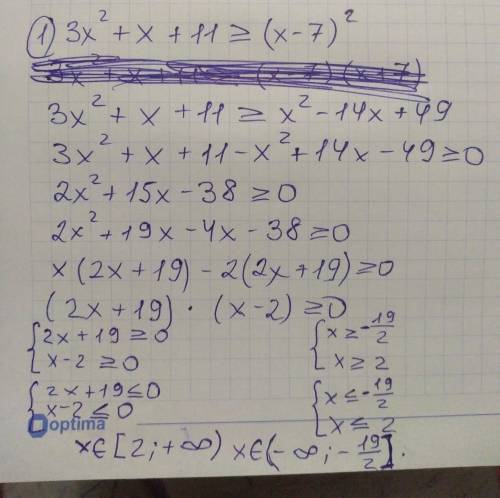 1) 3x² + x + 11 ≥ (x-7)²
3x² + x + 11 ≥ x² - 14x + 49
3x² + x + 11 - x² + 14x - 49 ≥ 0
2x² + 15x - 38 ≥ 0
2x² + 19x - 4x - 38 ≥ 0
x(2x + 19) - 2(2x + 19) ≥ 0
(2x + 19) · (x - 2) ≥ 0
{2x + 19 ≥ 0 {x ≥ -19/2
x - 2 ≥ 0 x ≥ 2
{2x + 19 ≤ 0 {x ≤ -19/2
x - 2 ≤ 0 x ≤ 2
optima
x ∈ [2; +∞) x ∈ (-∞; -19/2].